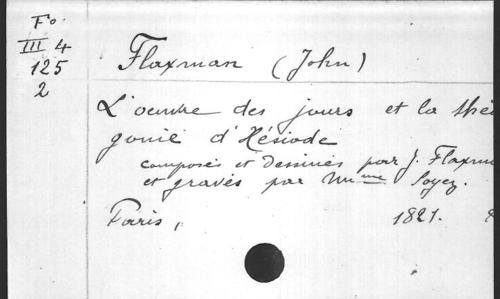 Fo.
III 4
125
2
Flaxman (John)
L'oeuvre des jours et la théo
gonie d'Hésiode
composés et dessinés par J. Flaxma
et gravés par Mme Soyez.
Paris, 1821.